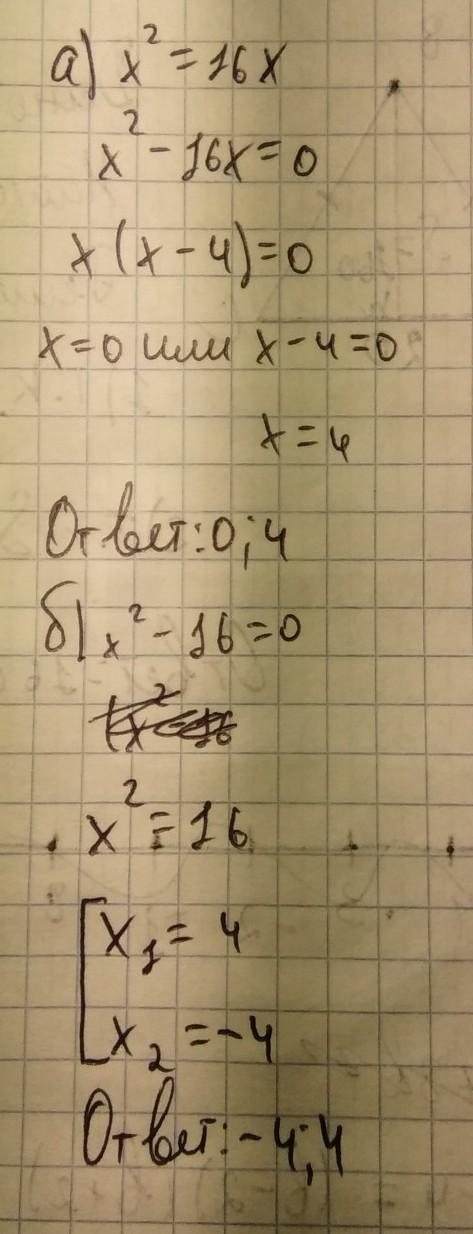 а) x² = 16x
x² - 16x = 0
x(x - 4) = 0
x = 0 или x - 4 = 0
x = 4
Ответ: 0; 4
б) x² - 16 = 0
x² = 16
x₁ = 4
x₂ = -4
Ответ: -4; 4